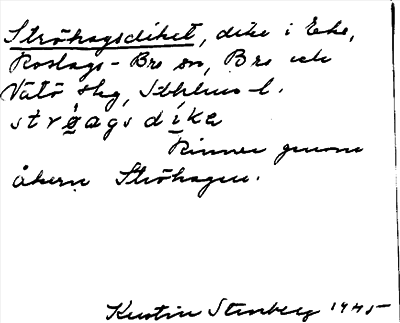 Ströhagsdiket, dike i Eke,
Roslags-Bro sn, Bro och
Vätö skg, Sthlms l.
strøags díka
Rinner genom
åkern Ströhagen.
Kerstin Stenberg 1945